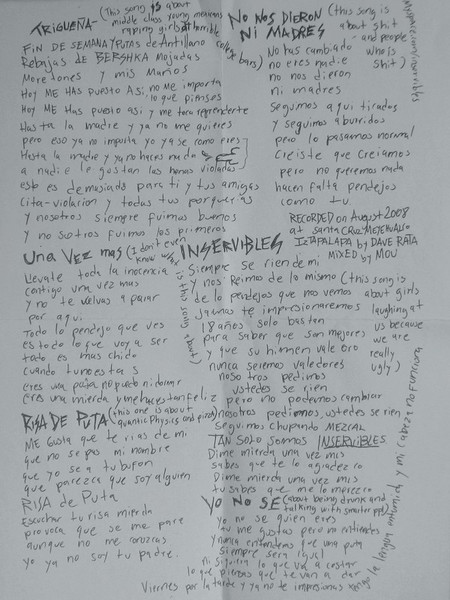 TRIGUEÑA- (This song is about
middle class young mexicans
raping girls at horrible
college bars)
FIN DE SEMANA Y PUTAS de Antillano
Rebajas de BERSHKA Mojadas
Moretones y mis Manos
Hoy ME HAS PUESTO ASi no Me importa
lo que pienses
Hoy ME Has puesto asi y me toca reprenderte
Hasta la madre y ya no me quieres
pero eso ya no importa yo ya se como eres
Hasta la madre y ya no haces nada
a nadie le gustan las nenas violadas
esto es demasiado para ti y tus amigas
cita-violacion y todas tus porquerias
y nosotros siempre fuimos buenos
y nosotros fuimos los primeros
Una Vez mas (I don't even
know why
is this song about)
Llevate toda la inocencia
contigo una vez mas
y no te vuelvas a parar
por aqui
Todo lo pendejo que ves
es todo lo que voy a ser
todo es mas chido
cuando tu no estas
eres una puta no puedo ni dormir
eres una mierda y me haces tan feliz
RISA DE PUTA (this one is about
quantic Physics and
ME Gusta que te rias de mi
que no se pas mi nombre
que yo sea tu bufon
que parezca que soy alguien
RISA de Puta
Escuchar tu risa mierda
provoca que se me pare
aunque no me conozcas
yo ya no soy tu padre.
NO NOS DIERON
NI MADRES
(this song is
about shit
and people
who is
shit)
Myspace.com/inservibles
No has cambiado
no eres nadie
no nos dieron
ni madres
Seguimos aqui tirados
y seguimos aburridos
pero lo pasamos normal
Creiste que Creiamos
pero no queremos nada
hacen falta pendejos
como tu
RECORDED on August 2008
at SANTA CRUZ MEYEHUALCO
IZTAPALAPA by DAVE RATA
MIXED by MOU
INSERVIBLES
(this song is
about girls
laughing at
us because
we are
really
ugly)
Siempre se rien de mi
y nos Reimos de lo mismo
de lo pendejos que nos vemos
jamas te impresionaremos
18 años solo bastan
para saber que son mejores
y que su himen vale oro
nunca seremos valedores
nosotros pedimos
ustedes se rien
pero no podemos cambiar
nosotros pedimos, ustedes se rien
Seguimos chupando MEZCAL
TAN SOLO SOMOS INSERVIBLES
Dime mierda una vez mas
sabes que te lo agradezco
Dime mierda una vez mas
tu sabes que me lo merezco
YO NO SE (about being drunk and
talking with smarter ppl)
yo no se quien eres
tu me gustas pero no entiendes
y nunca entenderas que una puta
siempre sera igual
ni siquiera lo que va a costar
lo que piensas que te van a dar
Viernes por la tarde y ya no te impresionas
tengo la lengua entumida y mi cabeza no funciona